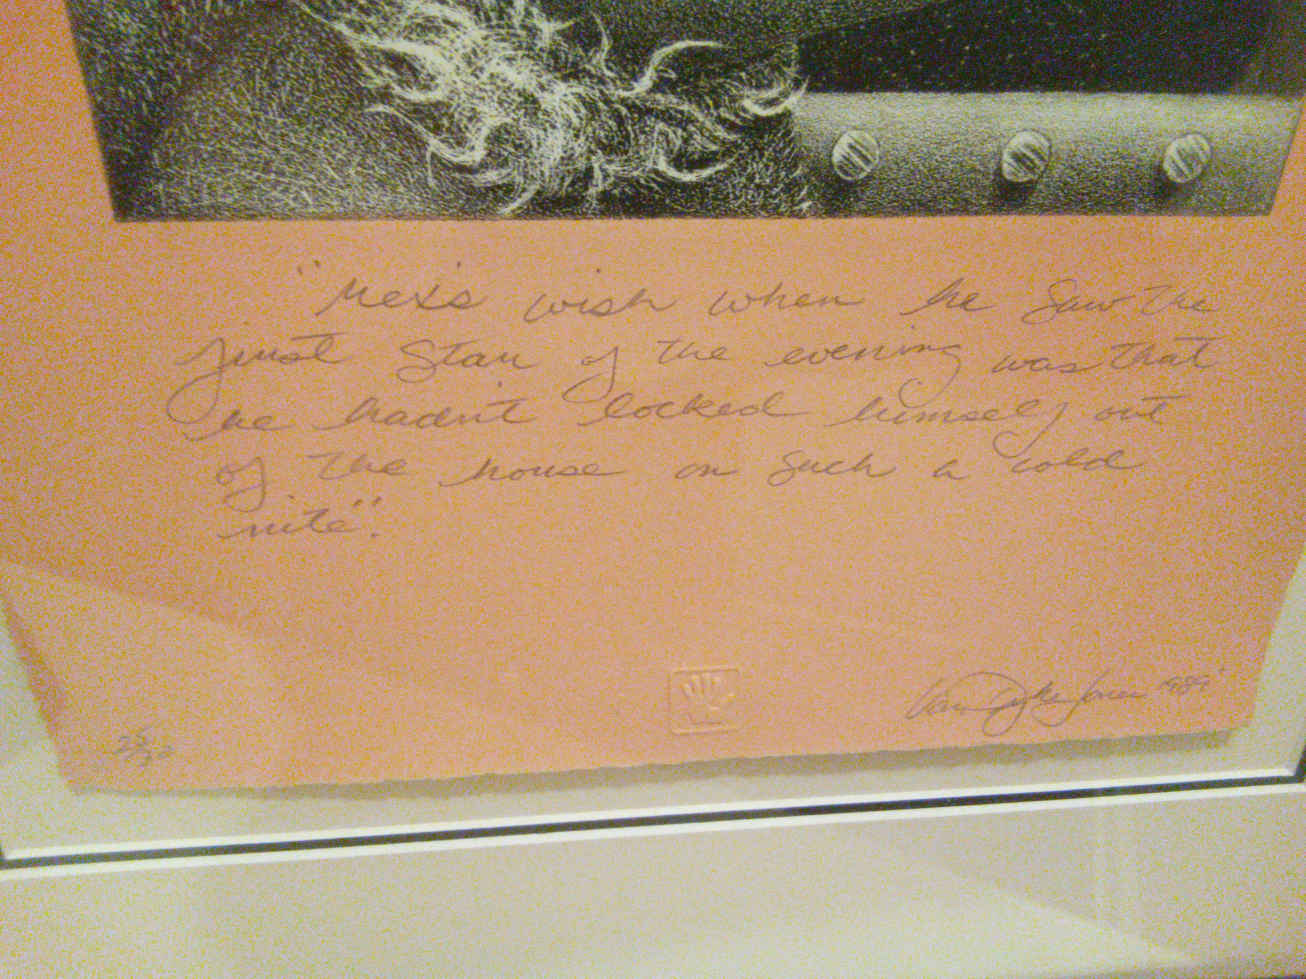 "Rex's wish when he saw the
first star of the evening was that
he hadn't locked himself out
of the house on such a cold
nite".
Van Dyke Jones 1989'